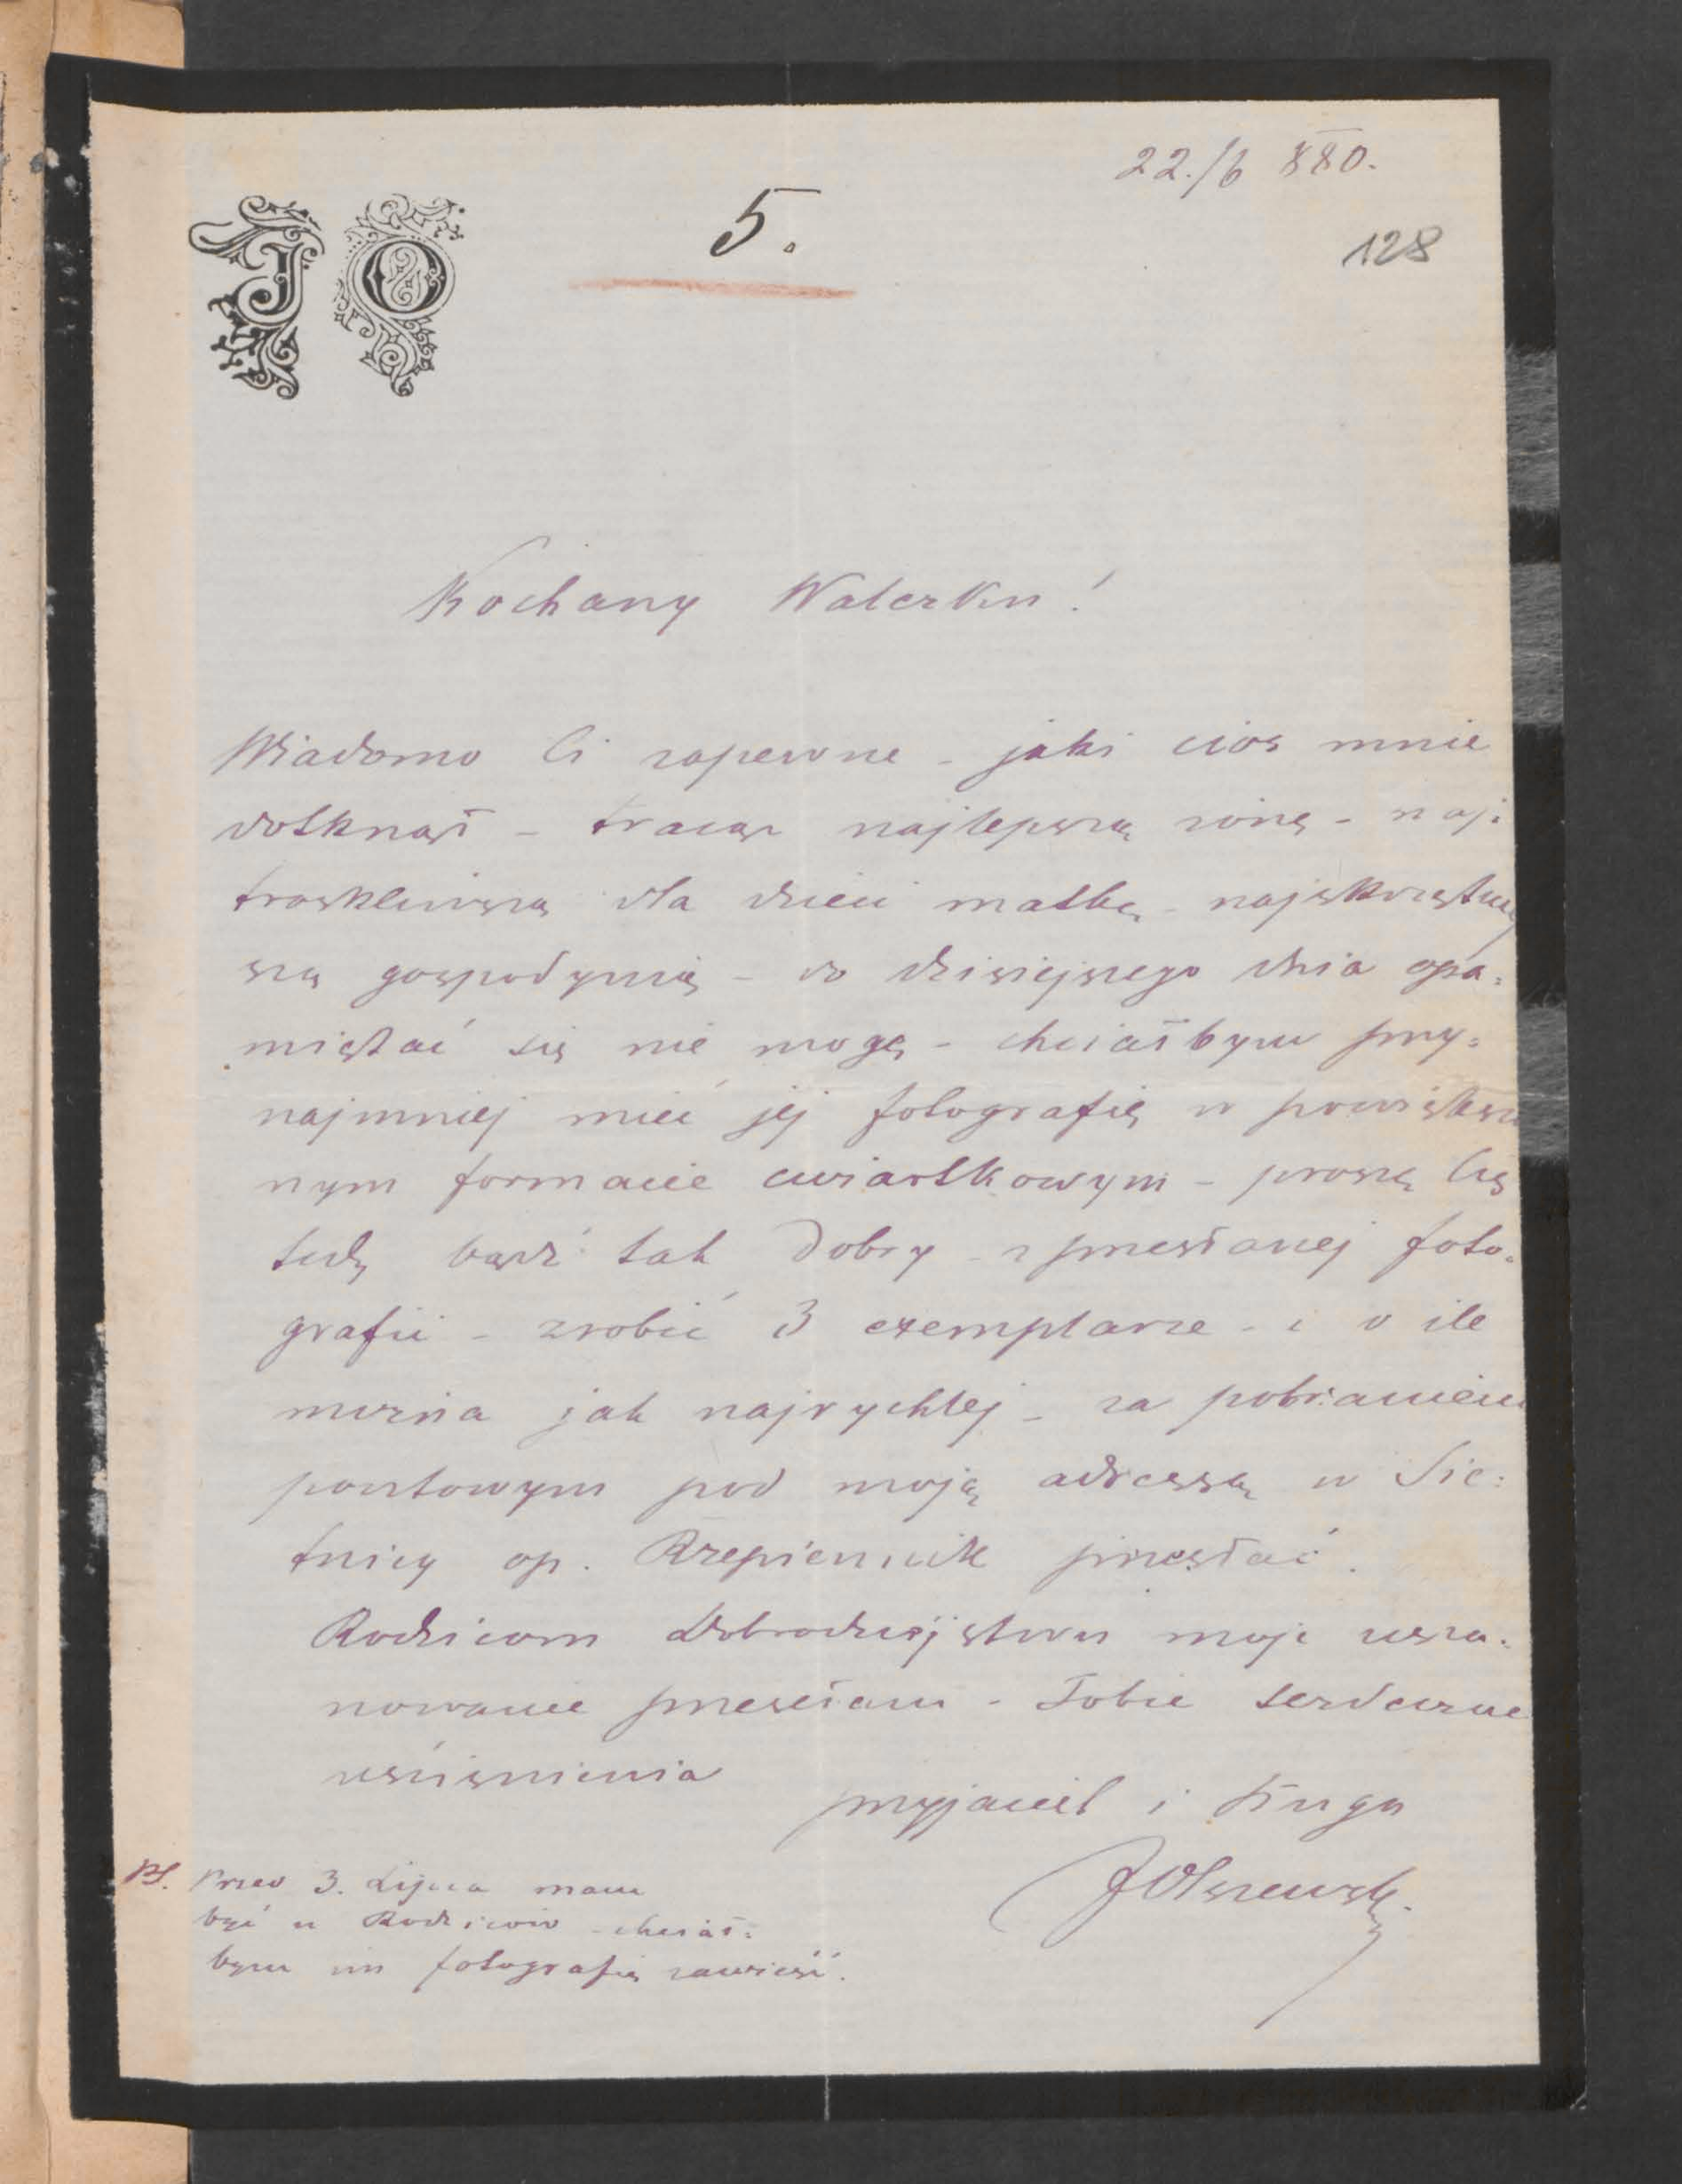 22./6 880.
5.
128
JO
Kochany Walerku!
Wiadomo Ci zapewne – jaki cios mnie
dotknął – tracąc najlepszą żonę – naj:
troskliwszą dla dzieci matkę – najskrzętniej
szą gospodynią – do dzisiejszego dnia opa:
miętać się nie mogę – chciałbym przy:
najmniej mieć jej fotografię w powiększo
nym formacie cwiartkowym – proszę Cię
tedy bądź tak dobry – z przesłanej foto:
grafii – zrobić 3 exemplarze – i o ile
można jak najrychlej – za pobraniem
pocztowym pod moją adressą w Sie:
tnicy op. Rzepiennik przesłać.
Rodzicom Dobrodziejstwu moje usza:
nowanie przesełam – Tobie serdeczne
uściśnienia
przyjaciel i sługa
JOlszewski
PS. Przed 3. Lipca mam
być u Rodziców – chciał:
bym im fotografię zawieść.